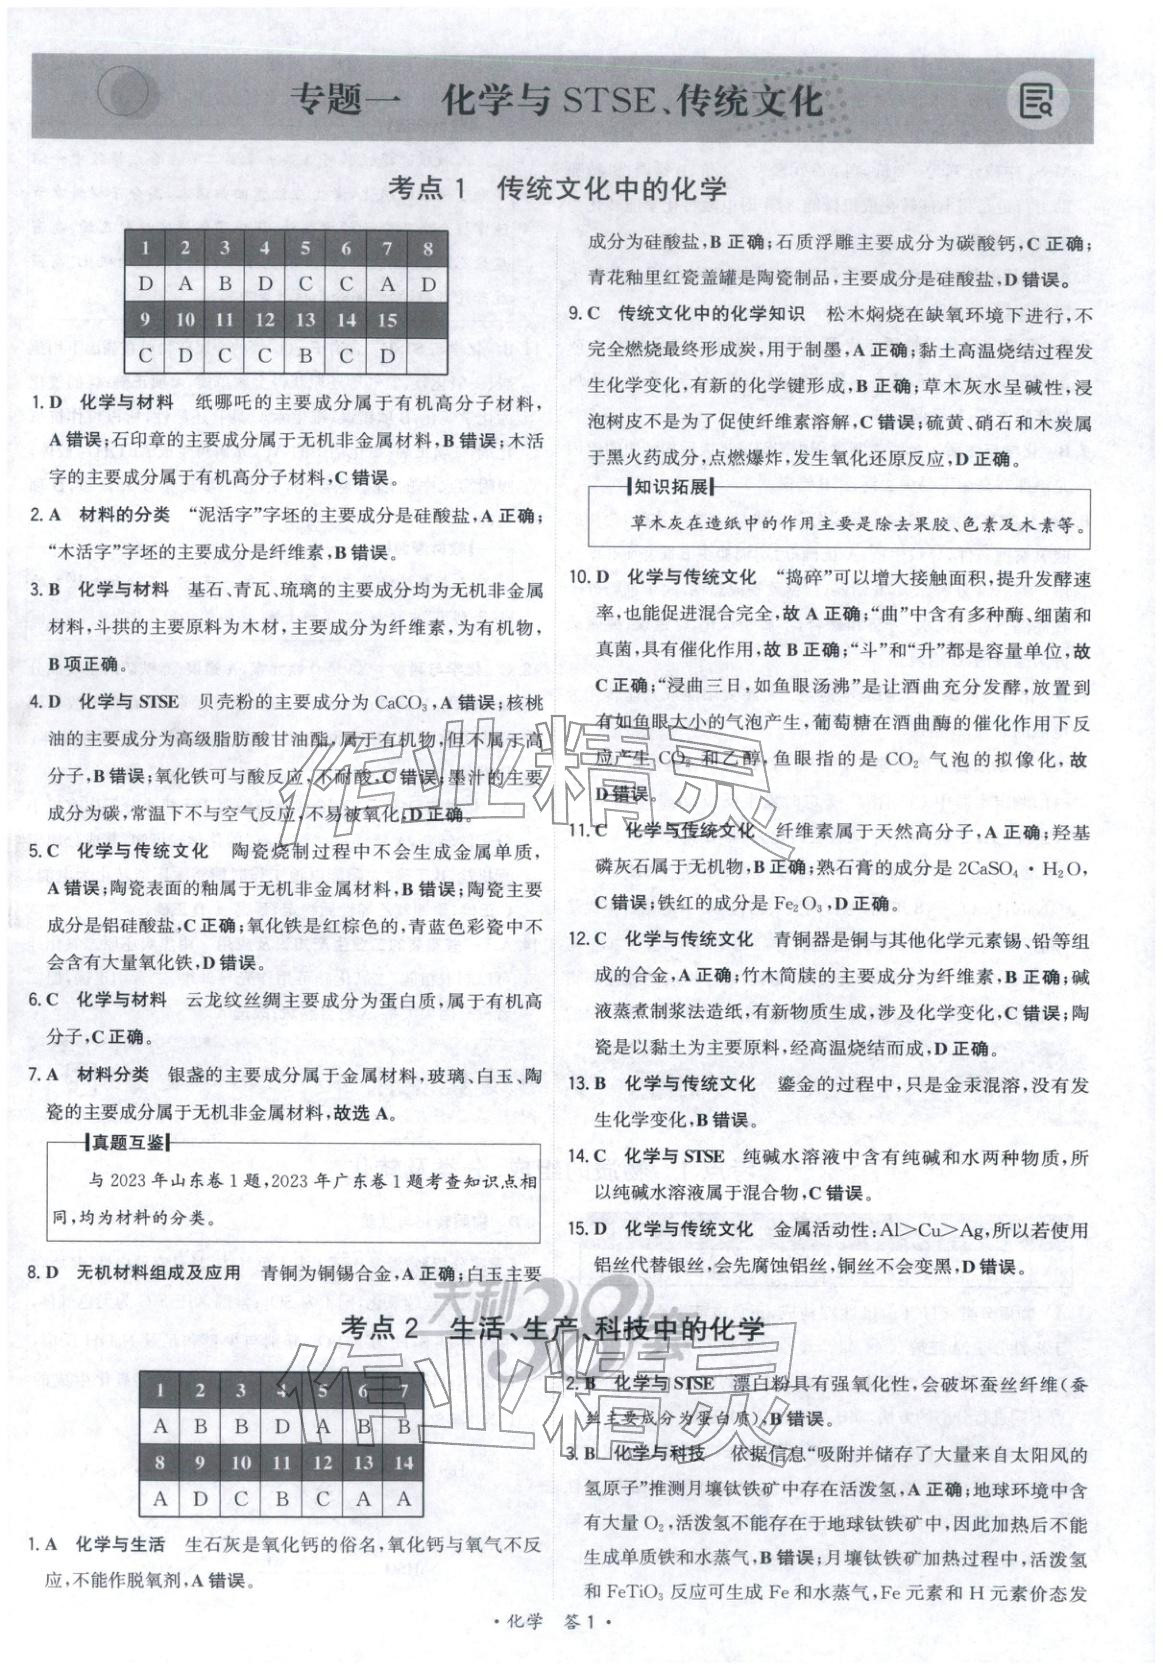 专题一 化学与STSE、传统文化
考点1 传统文化中的化学
1 2 3 4 5 6 7 8
D A B D C C A D
9 10 11 12 13 14 15
C D C C B C D
1. D 化学与材料 纸哪吒的主要成分属于有机高分子材料，
A错误；石印章的主要成分属于无机非金属材料，B错误；木活
字的主要成分属于有机高分子材料，C错误。
2. A 材料的分类 “泥活字”字坯的主要成分是硅酸盐，A正确；
“木活字”字坯的主要成分是纤维素，B错误。
3. B 化学与材料 基石、青瓦、琉璃的主要成分均为无机非金属
材料，斗拱的主要原料为木材，主要成分为纤维素，为有机物，
B项正确。
4. D 化学与STSE 贝壳粉的主要成分为CaCO₃，A错误；核桃
油的主要成分为高级脂肪酸甘油酯，属于有机物，但不属于高
分子，B错误；氧化铁可与酸反应，不耐酸，C错误；墨汁的主要
成分为碳，常温下不与空气反应，不易被氧化，D正确。
5. C 化学与传统文化 陶瓷烧制过程中不会生成金属单质，
A错误；陶瓷表面的釉属于无机非金属材料，B错误；陶瓷主要
成分是铝硅酸盐，C正确；氧化铁是红棕色的，青蓝色彩瓷中不
会含有大量氧化铁，D错误。
6. C 化学与材料 云龙纹丝绸主要成分为蛋白质，属于有机高
分子，C正确。
7. A 材料分类 银盏的主要成分属于金属材料，玻璃、白玉、陶
瓷的主要成分属于无机非金属材料，故选A。
真题互鉴
与2023年山东卷1题，2023年广东卷1题考查知识点相
同，均为材料的分类。
8. D 无机材料组成及应用 青铜为铜锡合金，A正确；白玉主要
成分为硅酸盐，B正确；石质浮雕主要成分为碳酸钙，C正确；
青花釉里红瓷盖罐是陶瓷制品，主要成分是硅酸盐，D错误。
9. C 传统文化中的化学知识 松木焖烧在缺氧环境下进行，不
完全燃烧最终形成炭，用于制墨，A正确；黏土高温烧结过程发
生化学变化，有新的化学键形成，B正确；草木灰水呈碱性，浸
泡树皮不是为了促使纤维素溶解，C错误；硫黄、硝石和木炭属
于黑火药成分，点燃爆炸，发生氧化还原反应，D正确。
知识拓展
草木灰在造纸中的作用主要是除去果胶、色素及木素等。
10. D 化学与传统文化 “捣碎”可以增大接触面积，提升发酵速
率，也能促进混合完全，故A正确；“曲”中含有多种酶、细菌和
真菌，具有催化作用，故B正确；“斗”和“升”都是容量单位，故
C正确；“浸曲三日，如鱼眼汤沸”是让酒曲充分发酵，放置到
有如鱼眼大小的气泡产生，葡萄糖在酒曲酶的催化作用下反
应产生CO₂和乙醇，鱼眼指的是CO₂气泡的拟像化，故
D错误。
11. C 化学与传统文化 纤维素属于天然高分子，A正确；羟基
磷灰石属于无机物，B正确；熟石膏的成分是2CaSO₄·H₂O，
C错误；铁红的成分是Fe₂O₃，D正确。
12. C 化学与传统文化 青铜器是铜与其他化学元素锡、铅等组
成的合金，A正确；竹木简牍的主要成分为纤维素，B正确；碱
液蒸煮制浆法造纸，有新物质生成，涉及化学变化，C错误；陶
瓷是以黏土为主要原料，经高温烧结而成，D正确。
13. B 化学与传统文化 鎏金的过程中，只是金汞混溶，没有发
生化学变化，B错误。
14. C 化学与STSE 纯碱水溶液中含有纯碱和水两种物质，所
以纯碱水溶液属于混合物，C错误。
15. D 化学与传统文化 金属活动性：Al>Cu>Ag，所以若使用
铝丝代替银丝，会先腐蚀铝丝，铜丝不会变黑，D错误。
考点2 生活、生产、科技中的化学
1 2 3 4 5 6 7
A B B D A B B
8 9 10 11 12 13 14
A D C B C A A
1. A 化学与生活 生石灰是氧化钙的俗名，氧化钙与氧气不反
应，不能作脱氧剂，A错误。
2. B 化学与STSE 漂白粉具有强氧化性，会破坏蚕丝纤维（蚕
丝主要成分为蛋白质），B错误。
3. B 化学与科技 依据信息“吸附并储存了大量来自太阳风的
氢原子”推测月壤钛铁矿中存在活泼氢，A正确；地球环境中含
有大量O₂，活泼氢不能存在于地球钛铁矿中，因此加热后不能
生成单质铁和水蒸气，B错误；月壤钛铁矿加热过程中，活泼氢
和FeTiO₃反应可生成Fe和水蒸气，Fe元素和H元素价态发
·化学 答1·
作业精灵
天利38套
作业精灵